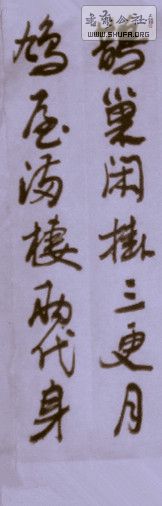 书法公社
WWW.SHUFA.ORG
鹊巢闲掛三更月
鸠屋满棲两代身